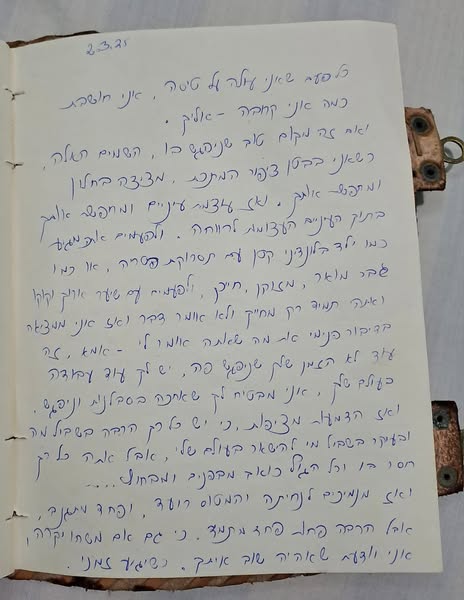 2.3.25
כל פעם שאני עולה על טיסה, אני חושבת
כמה אני קרובה -אליך.
ואם זה מקום טוב שניפגש בו, השמים האלה,
כשאני בבטן ציפור המתכת, מציצה בחלון
ומחפשת אותך. ואז עוצמת עיניים ומחפשת אותך
בתוך העיניים העצומות לרווחה. ולפעמים אתה מגיע
כמו ילד בלונדיני קטן עם תסרוקת פטריה, או כמו
גבר מואר, מזוקן, חייכן, ולפעמים עם שיער ארוך וקוקו
ואתה תמיד רק מחייך ולא אומר דבר ואז אני ממציאה
בדיבור פנימי את מה שאתה אומר לי - אמא, זה
עוד לא הזמן שלך שניפגש פה, יש לך עוד עבודה
בעולם שלך, אני מבטיח לך שאחכה בסבלנות וניפגש.
ואז הדמעות מציפות, כי יש כל כך הרבה בשביל מה
ובעיקר בשביל מי להישאר בעולם שלי, אבל אתה כל כך
חסר בו וכל הגוף כואב מבפנים ומבחוץ....
ואז מנמיכים לנחיתה והמטוס רועד, ופחד מתגנב,
אבל הרבה פחות פחד מתמיד. כי גם אם משהו יקרה,
אני יודעת שאהיה שוב איתך. כשיגיע זמני.